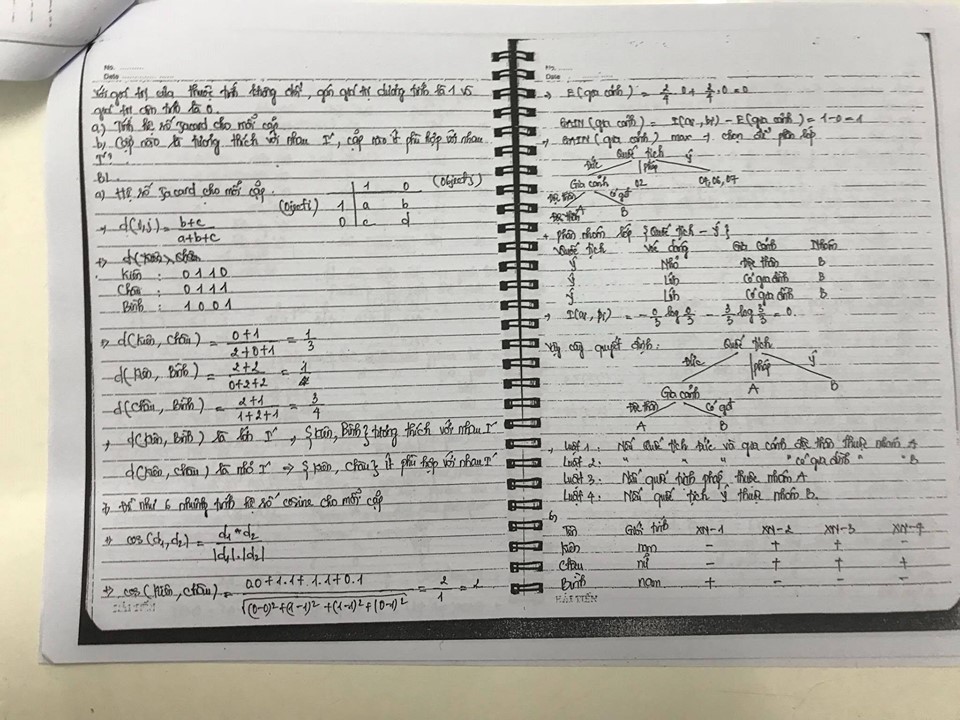 No.
Date
Với giá trị của thuộc tính không đối, gán giá trị dương tính là 1 và
giá trị âm tính là 0.
a) Tính hệ số Jacord cho mỗi cặp
b) Cặp nào là tương thích với nhau I', cặp nào ít phù hợp với nhau
I'?
Bl.
a) Hệ số Jacord cho mỗi cặp.
1 0 (Object j)
(Object i) 1 a b
0 c d
→ d(i,j) = b+c / a+b+c
⇒ d(Kiên, Châu
Kiên : 0 1 1 0
Châu : 0 1 1 1
Bình : 1 0 0 1
⇒ d(Kiên, Châu) = 0+1 / 2+0+1 = 1/3
d(Kiên, Bình) = 2+2 / 0+2+2 = 1
d(Châu, Bình) = 2+1 / 1+2+1 = 3/4
, d(Kiên, Bình) là lớn I' , {Kiên, Bình} tương thích với nhau I'
d(Kiên, Châu) là nhỏ I' ⇒ {Kiên, Châu} ít phù hợp với nhau I'
7, đề như 6 nhưng tính hệ số cosine cho mỗi cặp
⇒ cos(d₁, d₂) = d₁ * d₂ / |d₁|.|d₂|
⇒ cos(Kiên, Châu) = 0.0 + 1.1 + 1.1 + 0.1 / √(0-0)² + (1-1)² + (1-1)² + (0-1)² = 2/1 = 2
HẢI TIẾN
No.
Date
→ E(gia cảnh) = 2/4 . 0 + 2/4 . 0 = 0
GAIN(gia cảnh) = I(ni, pi) - E(gia cảnh) = 1 - 0 = 1
→ GAIN(gia cảnh) max → chọn để phân lớp
Quốc tịch
Đức Pháp Ý
Gia cảnh 02 04, 06, 07
Độc thân Có gđ
A B
+ Phân nhóm lớp {Quốc tịch - Ý}
Quốc tịch Vóc dáng Gia cảnh Nhóm
Ý Nhỏ Độc thân B
Ý Lớn Có gia đình B
Ý Lớn Có gia đình B
→ I(ni, pi) = - 0/3 log 0/3 - 3/3 log 3/3 = 0.
Vậy cây quyết định: Quốc tịch
Đức Pháp Ý
Gia cảnh A B
Độc thân Có gđ
A B
, Luật 1: Nếu quốc tịch Đức và gia cảnh độc thân thuộc nhóm A
Luật 2: " " " có gia đình " " B
Luật 3: Nếu quốc tịch pháp thuộc nhóm A
Luật 4: Nếu quốc tịch Ý thuộc nhóm B.
6,
Tên Giới tính XN-1 XN-2 XN-3 XN-4
Kiên nam - + + -
Châu nữ - + + +
Bình nam + - - -
HẢI TIẾN